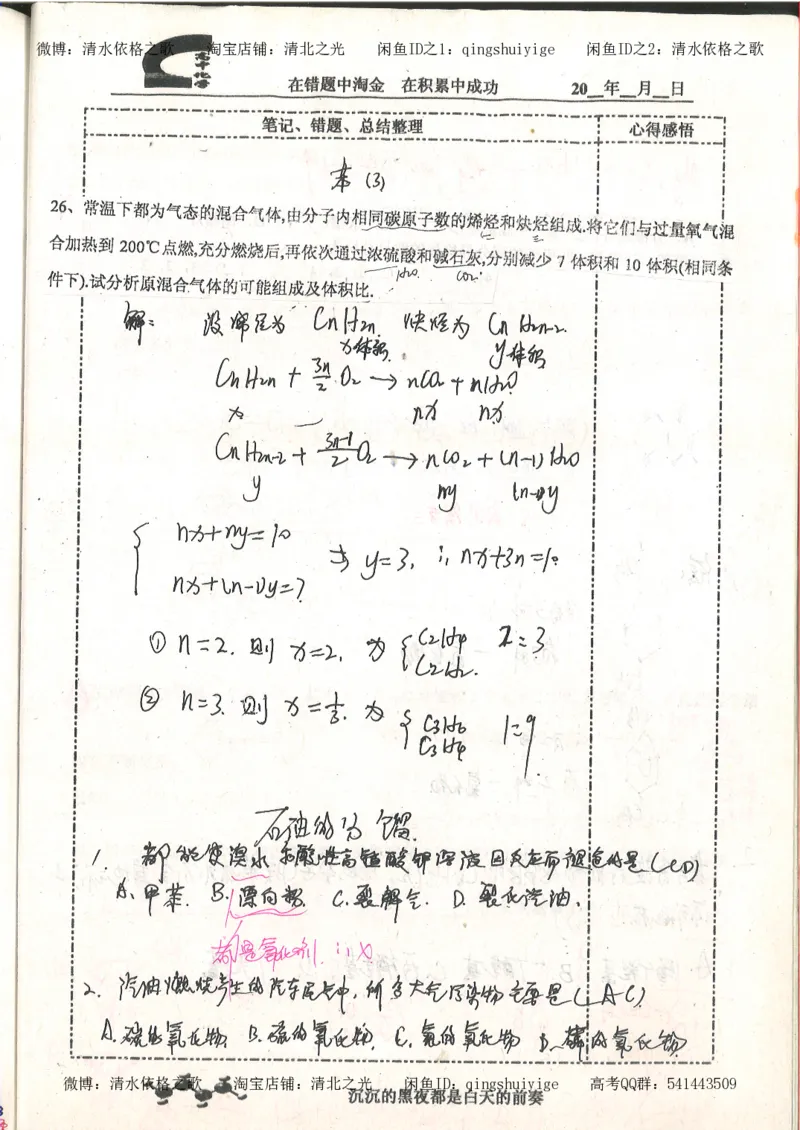 微博：清水依格之歌 淘宝店铺：清北之光 闲鱼ID之1：qingshuiyige 闲鱼ID之2：清水依格之歌
在错题中淘金 在积累中成功 20__年__月__日
笔记、错题、总结整理 心得感悟
苯 (3)
26、常温下都为气态的混合气体,由分子内相同碳原子数的烯烃和炔烃组成.将它们与过量氧气混
合加热到 200℃点燃,充分燃烧后,再依次通过浓硫酸和碱石灰,分别减少 7 体积和 10 体积(相同条
H₂O CO₂
件下).试分析原混合气体的可能组成及体积比.
解： 设烯烃为 CnH2n. 炔烃为 CnH2n-2.
x体积. y体积
CnH2n + 3n/2 O2 → nCO2 + nH2O
x nx nx
CnH2n-2 + 3n-1/2 O2 → nCO2 + (n-1)H2O
y ny (n-1)y
nx+ny=10
⇒ y=3, ∴ nx+3n=10
nx+(n-1)y=7
① n=2. 则 x=2, 为 { C2H4 C2H2. 2:3
② n=3. 则 x=1/3. 为 { C3H6 C3H4 1:9
石油的分馏.
1. 都能使溴水和酸性高锰酸钾溶液因反应而褪色的是 (CD)
A. 甲苯. B. 漂白粉 C. 裂解气. D. 裂化汽油.
都是氧化剂. ∴ X
2. 汽油燃烧产生的汽车尾气中, 所含大气污染物主要是 (AC)
A. 碳的氧化物. B. 硫的氧化物. C. 氮的氧化物 D. 磷的氧化物
微博：清水依格之歌 淘宝店铺：清北之光 闲鱼ID：qingshuiyige 高考QQ群：541443509
沉沉的黑夜都是白天的前奏